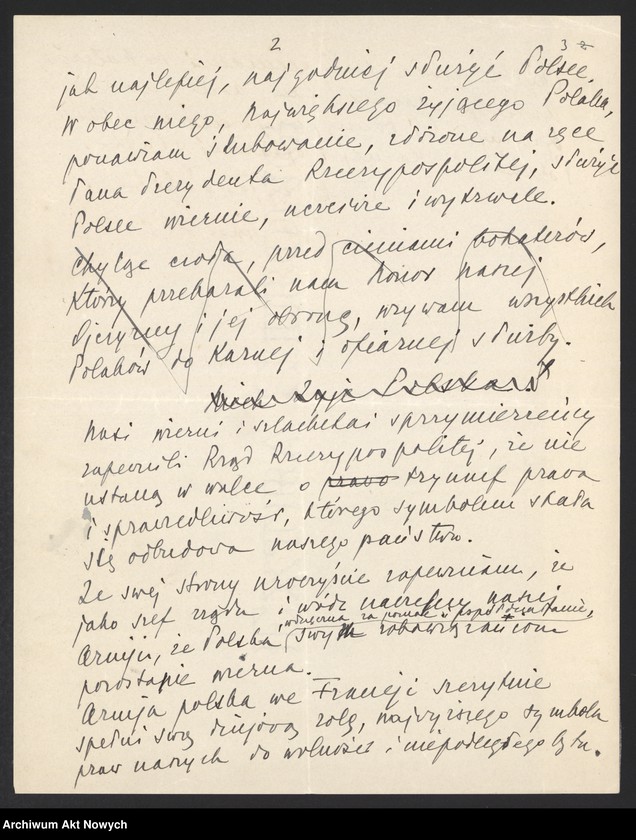 2
3
jak najlepiej, najgodniej służyć Polsce.
Wobec niego, największego żyjącego Polaka,
ponawiam ślubowanie, złożone na ręce
Pana Prezydenta Rzeczypospolitej, służyć
Polsce wiernie, uczciwie i wytrwale.
Chyląc czoła, przed cieniami bohaterów,
którzy przekazali nam honor naszej
Ojczyzny i jej obronę, wzywam wszystkich
Polaków do karnej i ofiarnej służby.
Niech żyje Polska!
Nasi wierni i szlachetni sprzymierzeńcy
zapewnili Rząd Rzeczypospolitej, że nie
ustaną w walce o prawo tryumf prawa
i sprawiedliwości, którego symbolem
się odbudowa naszego państwa.
Ze swej strony uroczyście zapewniam, że
jako szef rządu i wódz naczelny naszej
wdzięczna za pomoc i
Armji, że Polska swym zobowiązaniom
pozostanie wierna.
Armja polska we Francji zaszczytnie
spełni swą dziejową rolę, najwyższego symbolu
praw naszych do wolności i niepodległego bytu.
Archiwum Akt Nowych